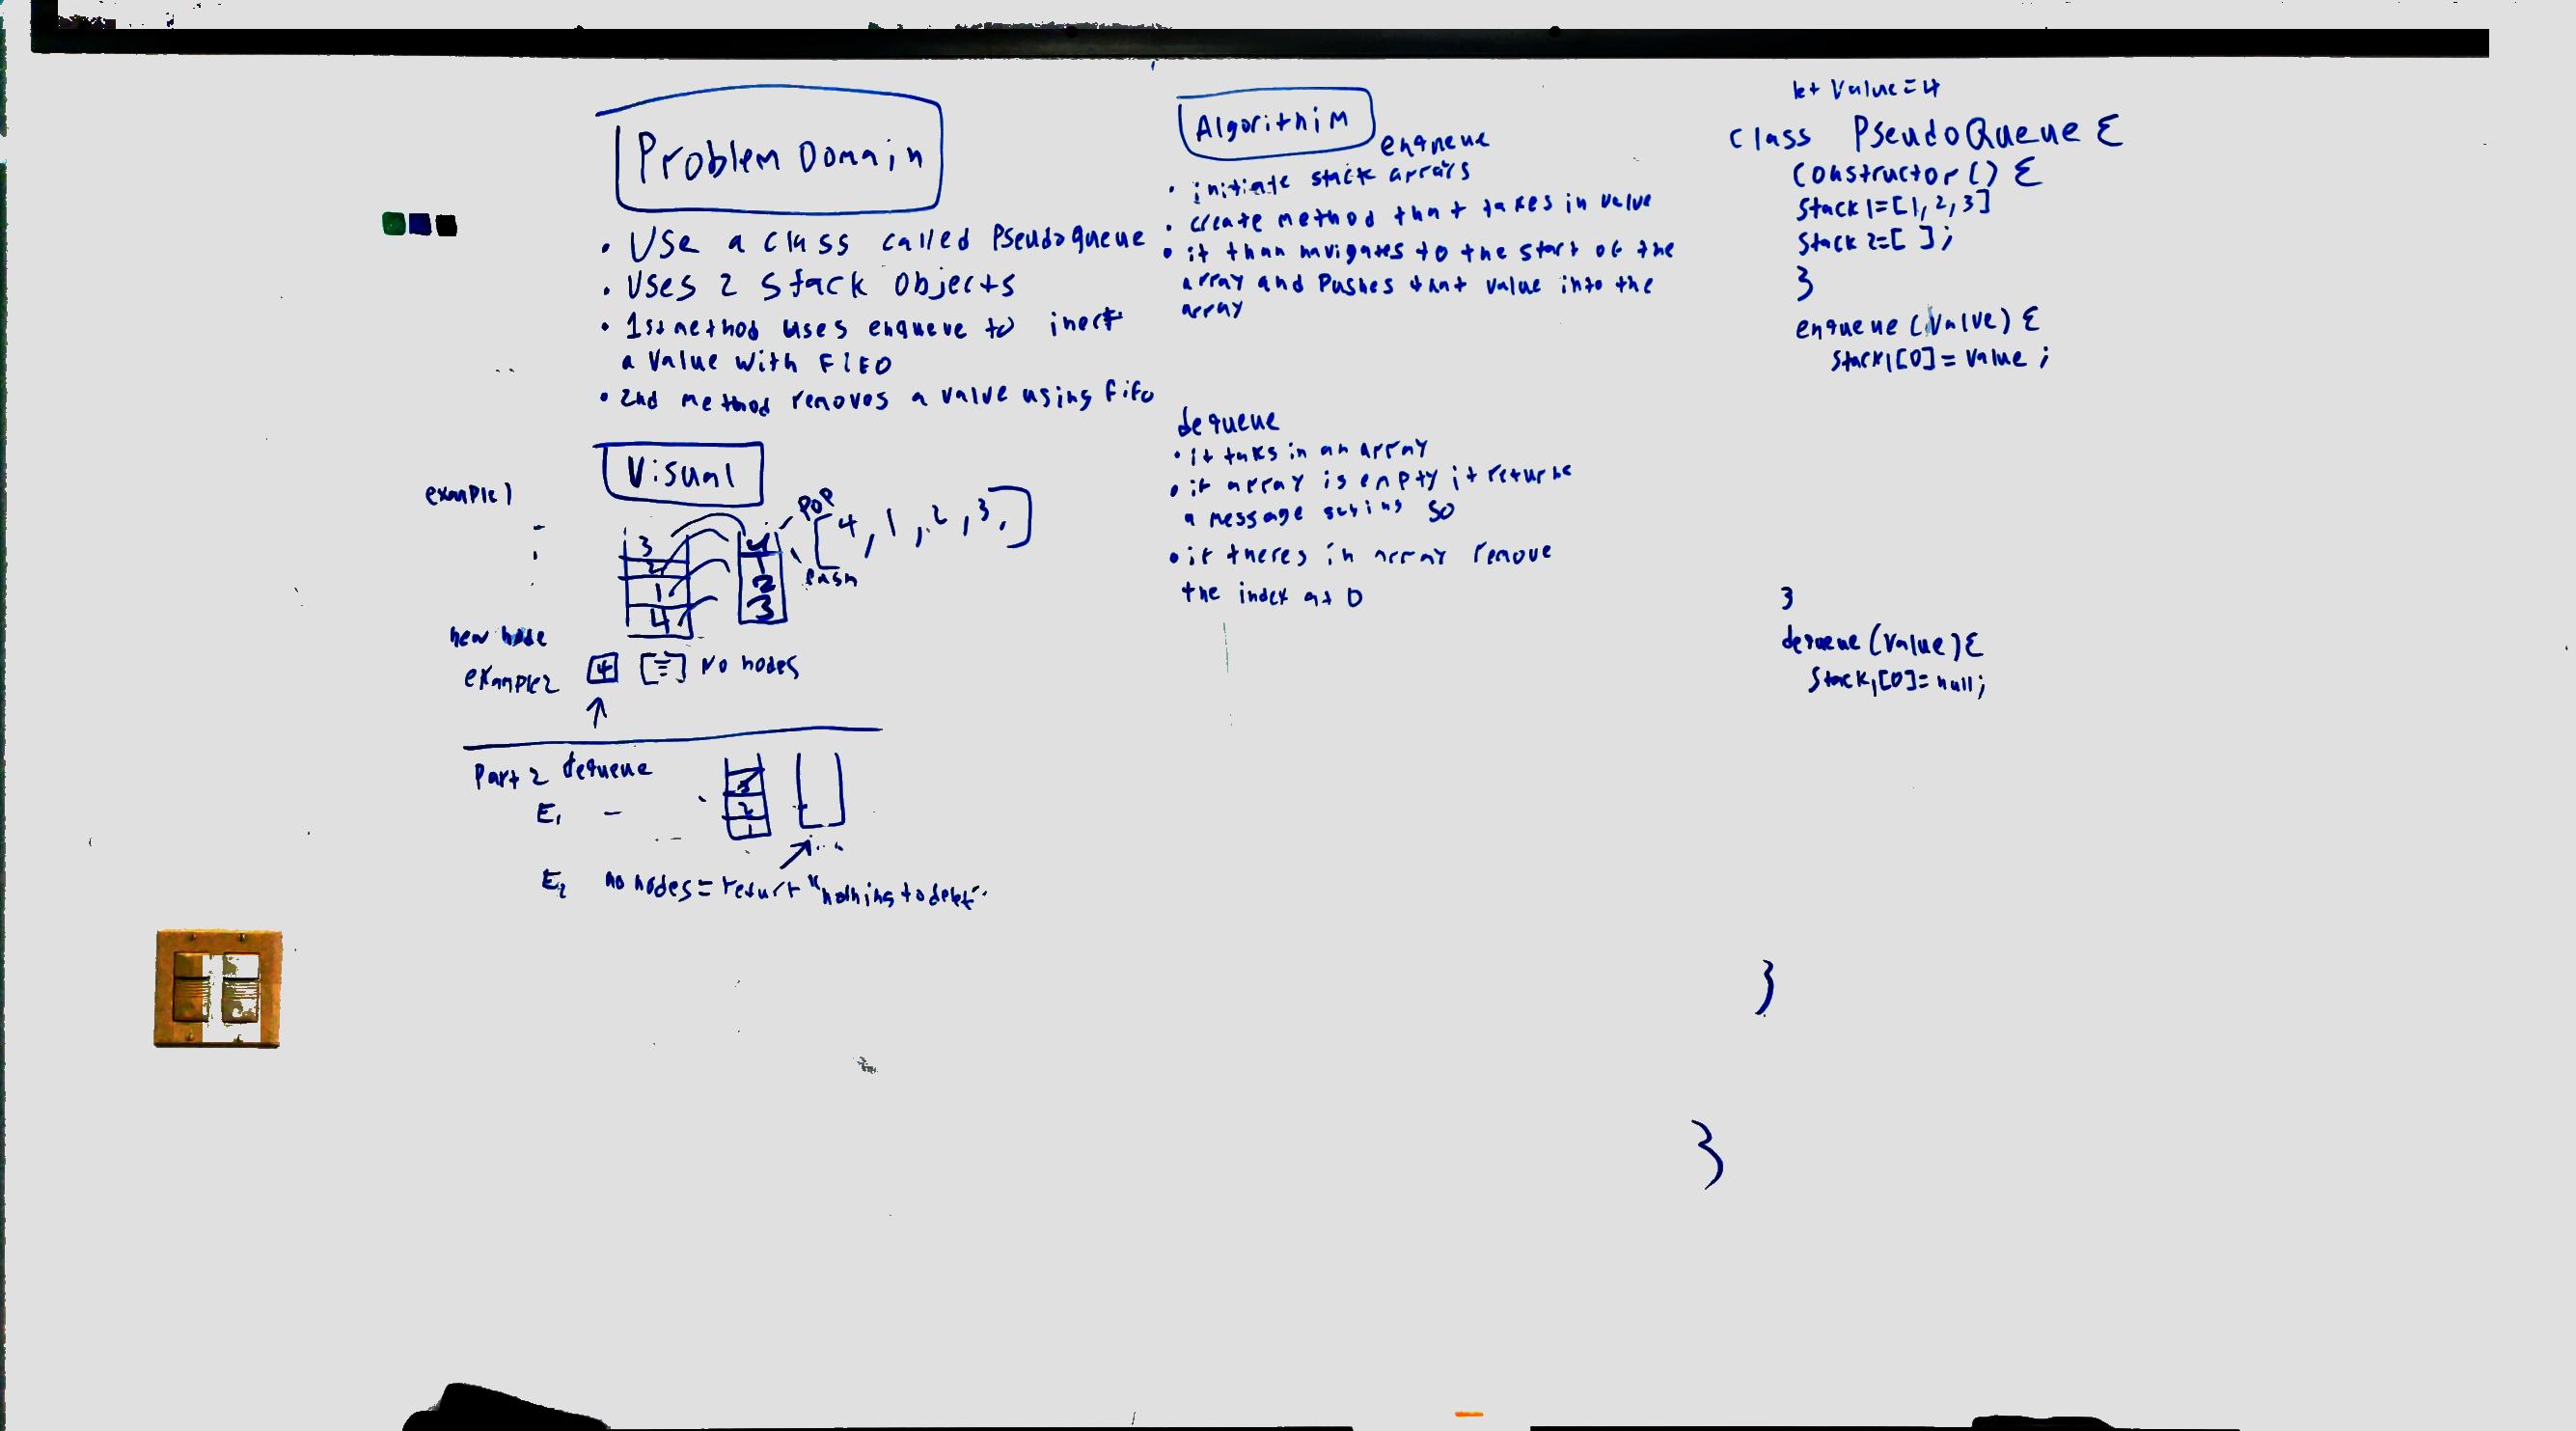 Problem Domain
• Use a class called Pseudoqueue
• Uses 2 Stack Objects
• 1st method uses enqueue to inert
a value with FIFO
• 2nd method removes a value using fifo
Visual
example 1
3
2
1
4
4
1
2
3
POP
push
[4, 1, 2, 3,]
new node
example 2
4
No nodes
Part 2 dequeue
E1 -
3
2
1
E2 no nodes = return "nothing to delete"
Algorithim
enqueue
• initiate stack arrays
• create method that takes in value
• it than navigates to the start of the
array and pushes that value into the
array
dequeue
• it taks in an array
• if array is empty it returns
a message saying so
• if theres in array remove
the index at 0
let value = 4
class PseudoQueue {
constructor () {
Stack1 = [1, 2, 3]
Stack2 = [ ];
}
enqueue (value) {
Stack1[0] = value;
}
dequeue (value) {
Stack1[0] = null;
}
}